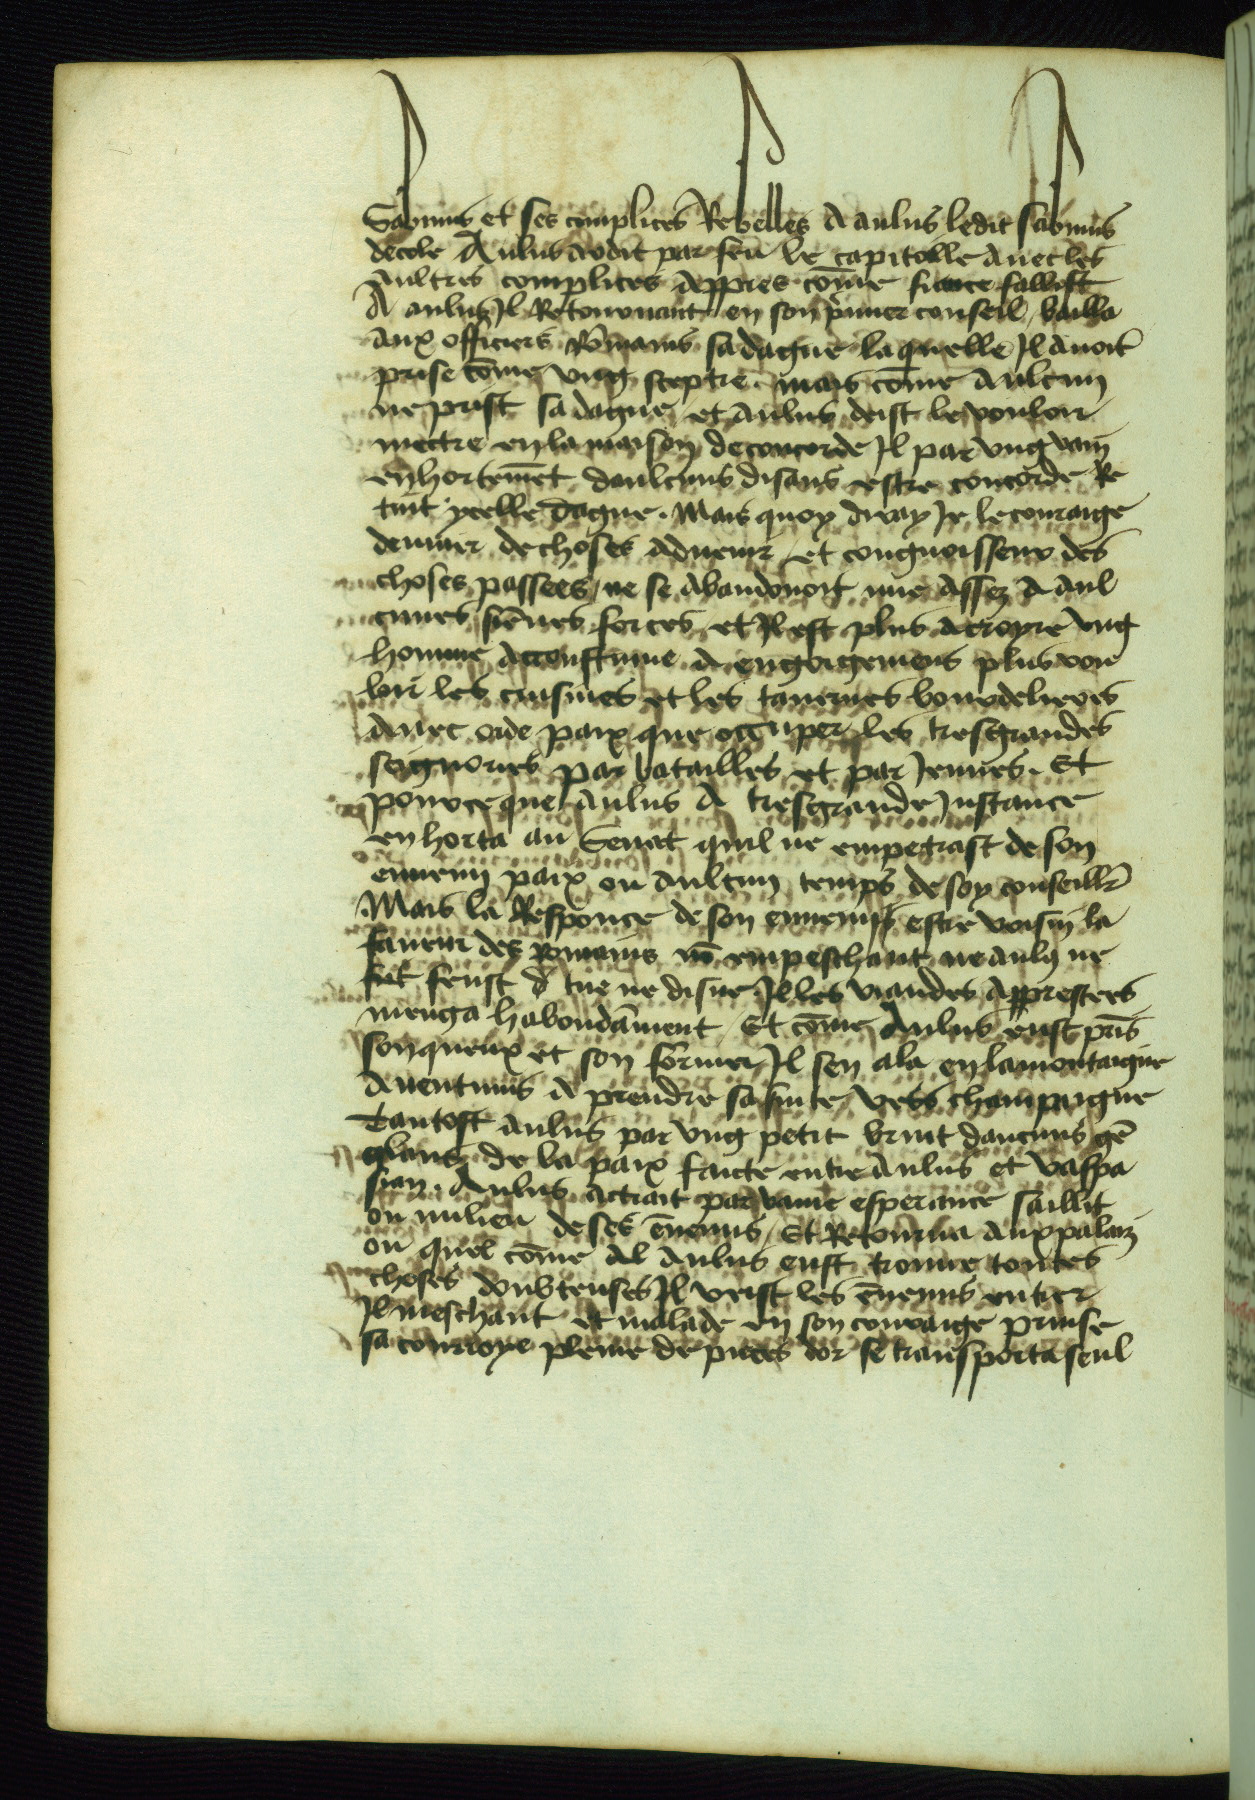 Sabinus et ses complices Rebelles A aulus ledit sabinus
decole Aulus ardit par feu le capitolle Avecles
Aultres complices Appres cōme fiance fallost
A aulus Il Retournant en son p̄mier conseil / bailla
Aux officiers Rōmains sa dague laquelle Il Avoit
prise cōme vng sceptre. mais cōme Aulcun
ne prist sa dague et Aulus deist le vouloir
mectre en la maison de concorde Il par vng vain
enhortemēt daulcuns disans estre concorde Re
tint ycelle dague. Mais quoy diray Je le couraige
deviner de choses Advenir / et congnoisseur des
choses passees / ne se Abandonoit mie Assez A Aul
cunes siēnes forces et Il est plus Acroyre vng
homme Accoustume A engorgemens plus vou
loir les cuisines et les tavernes bourdelieres
Avec orde paix que occuper les tresgrandes
seignories par batailles et par Jeunes. Et
pource que Aulus A tresgrande Instance
en horta au Senat quil ne empetrast de son
ennemy paix ou Aulcun temps de soy conseillr̄
Mais la Responce de son ennemy estre voisin la
faveur des Romains nō empeschant ne Aulus ne
fut feust tue ne disne Il les viandes Apprestees
menga habondāment / Et cōme Aulus eust pris
son queux et son fornier Il sen ala en la montaigne
Aventinus A prendre sa fuite vers champaigne
Tantost Aulus par vng petit bruit dancuns
de la paix faicte entre Aulus et vaspa
sian. Aulus Actrait par vaine esperance saillit
ou milieu de ses ēnemis / Et Retourna Aux palaiz
ou quel cōme Al Aulus eust trouve toutes
choses doubteuses Il veist les ēnemis entrer
Il meschant et malade en son couraige prinse
sa courroye pleine de pieces dor se transporta seul